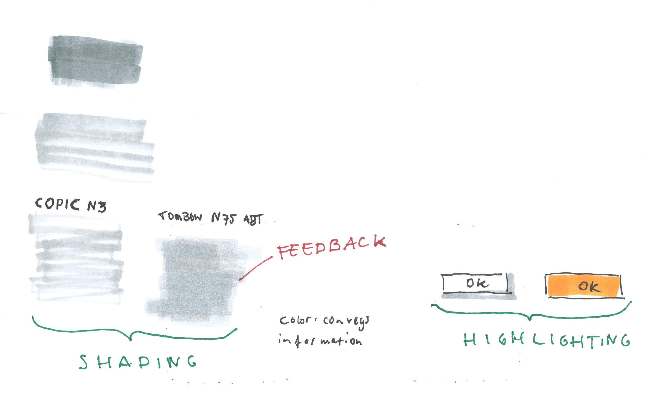 COPIC N3
TOMBOW N75 ABT
FEEDBACK
OK
OK
Color: conveys
information
SHADING
HIGHLIGHTING